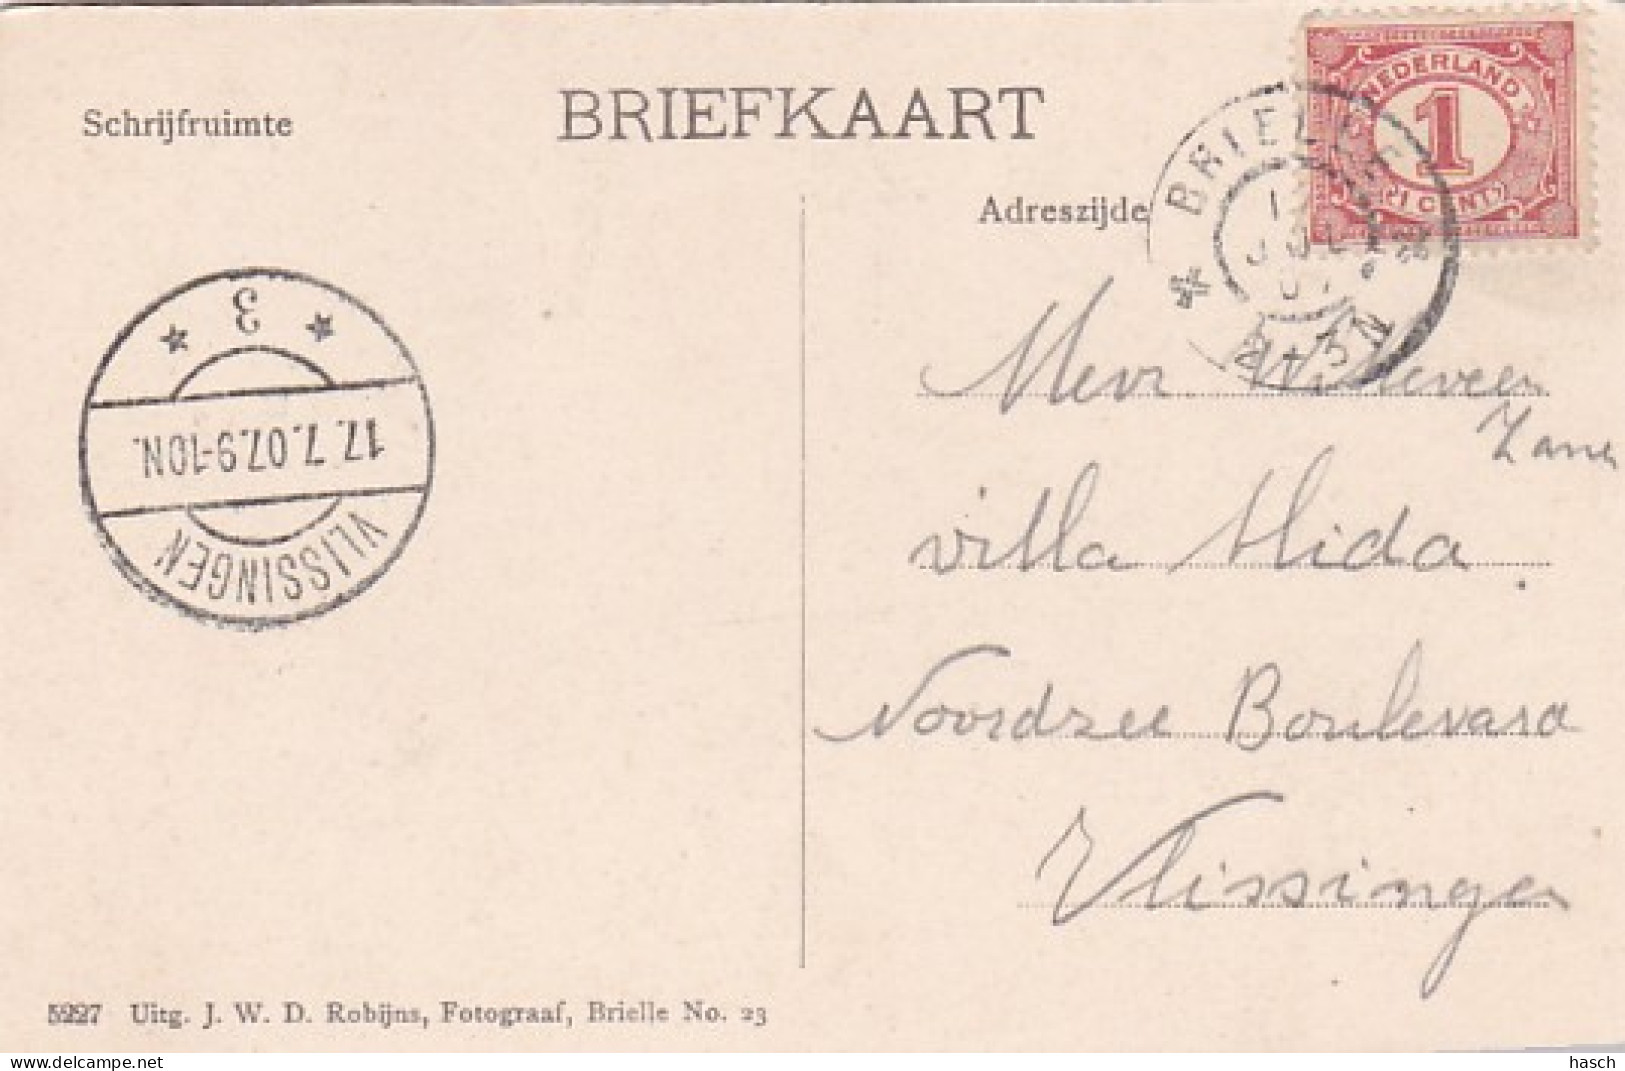 BRIEFKAART
Schrijfruimte
Adreszijde
NEDERLAND
1
1 CENT
BRIELLE
JUL
2-3N
3
17.7.07.9-10N.
VLISSINGEN
Mevr.
villa Alida
Noordzee Boulevard
Vlissingen
5227 Uitg. J. W. D. Robijns, Fotograaf, Brielle No. 23
hasch